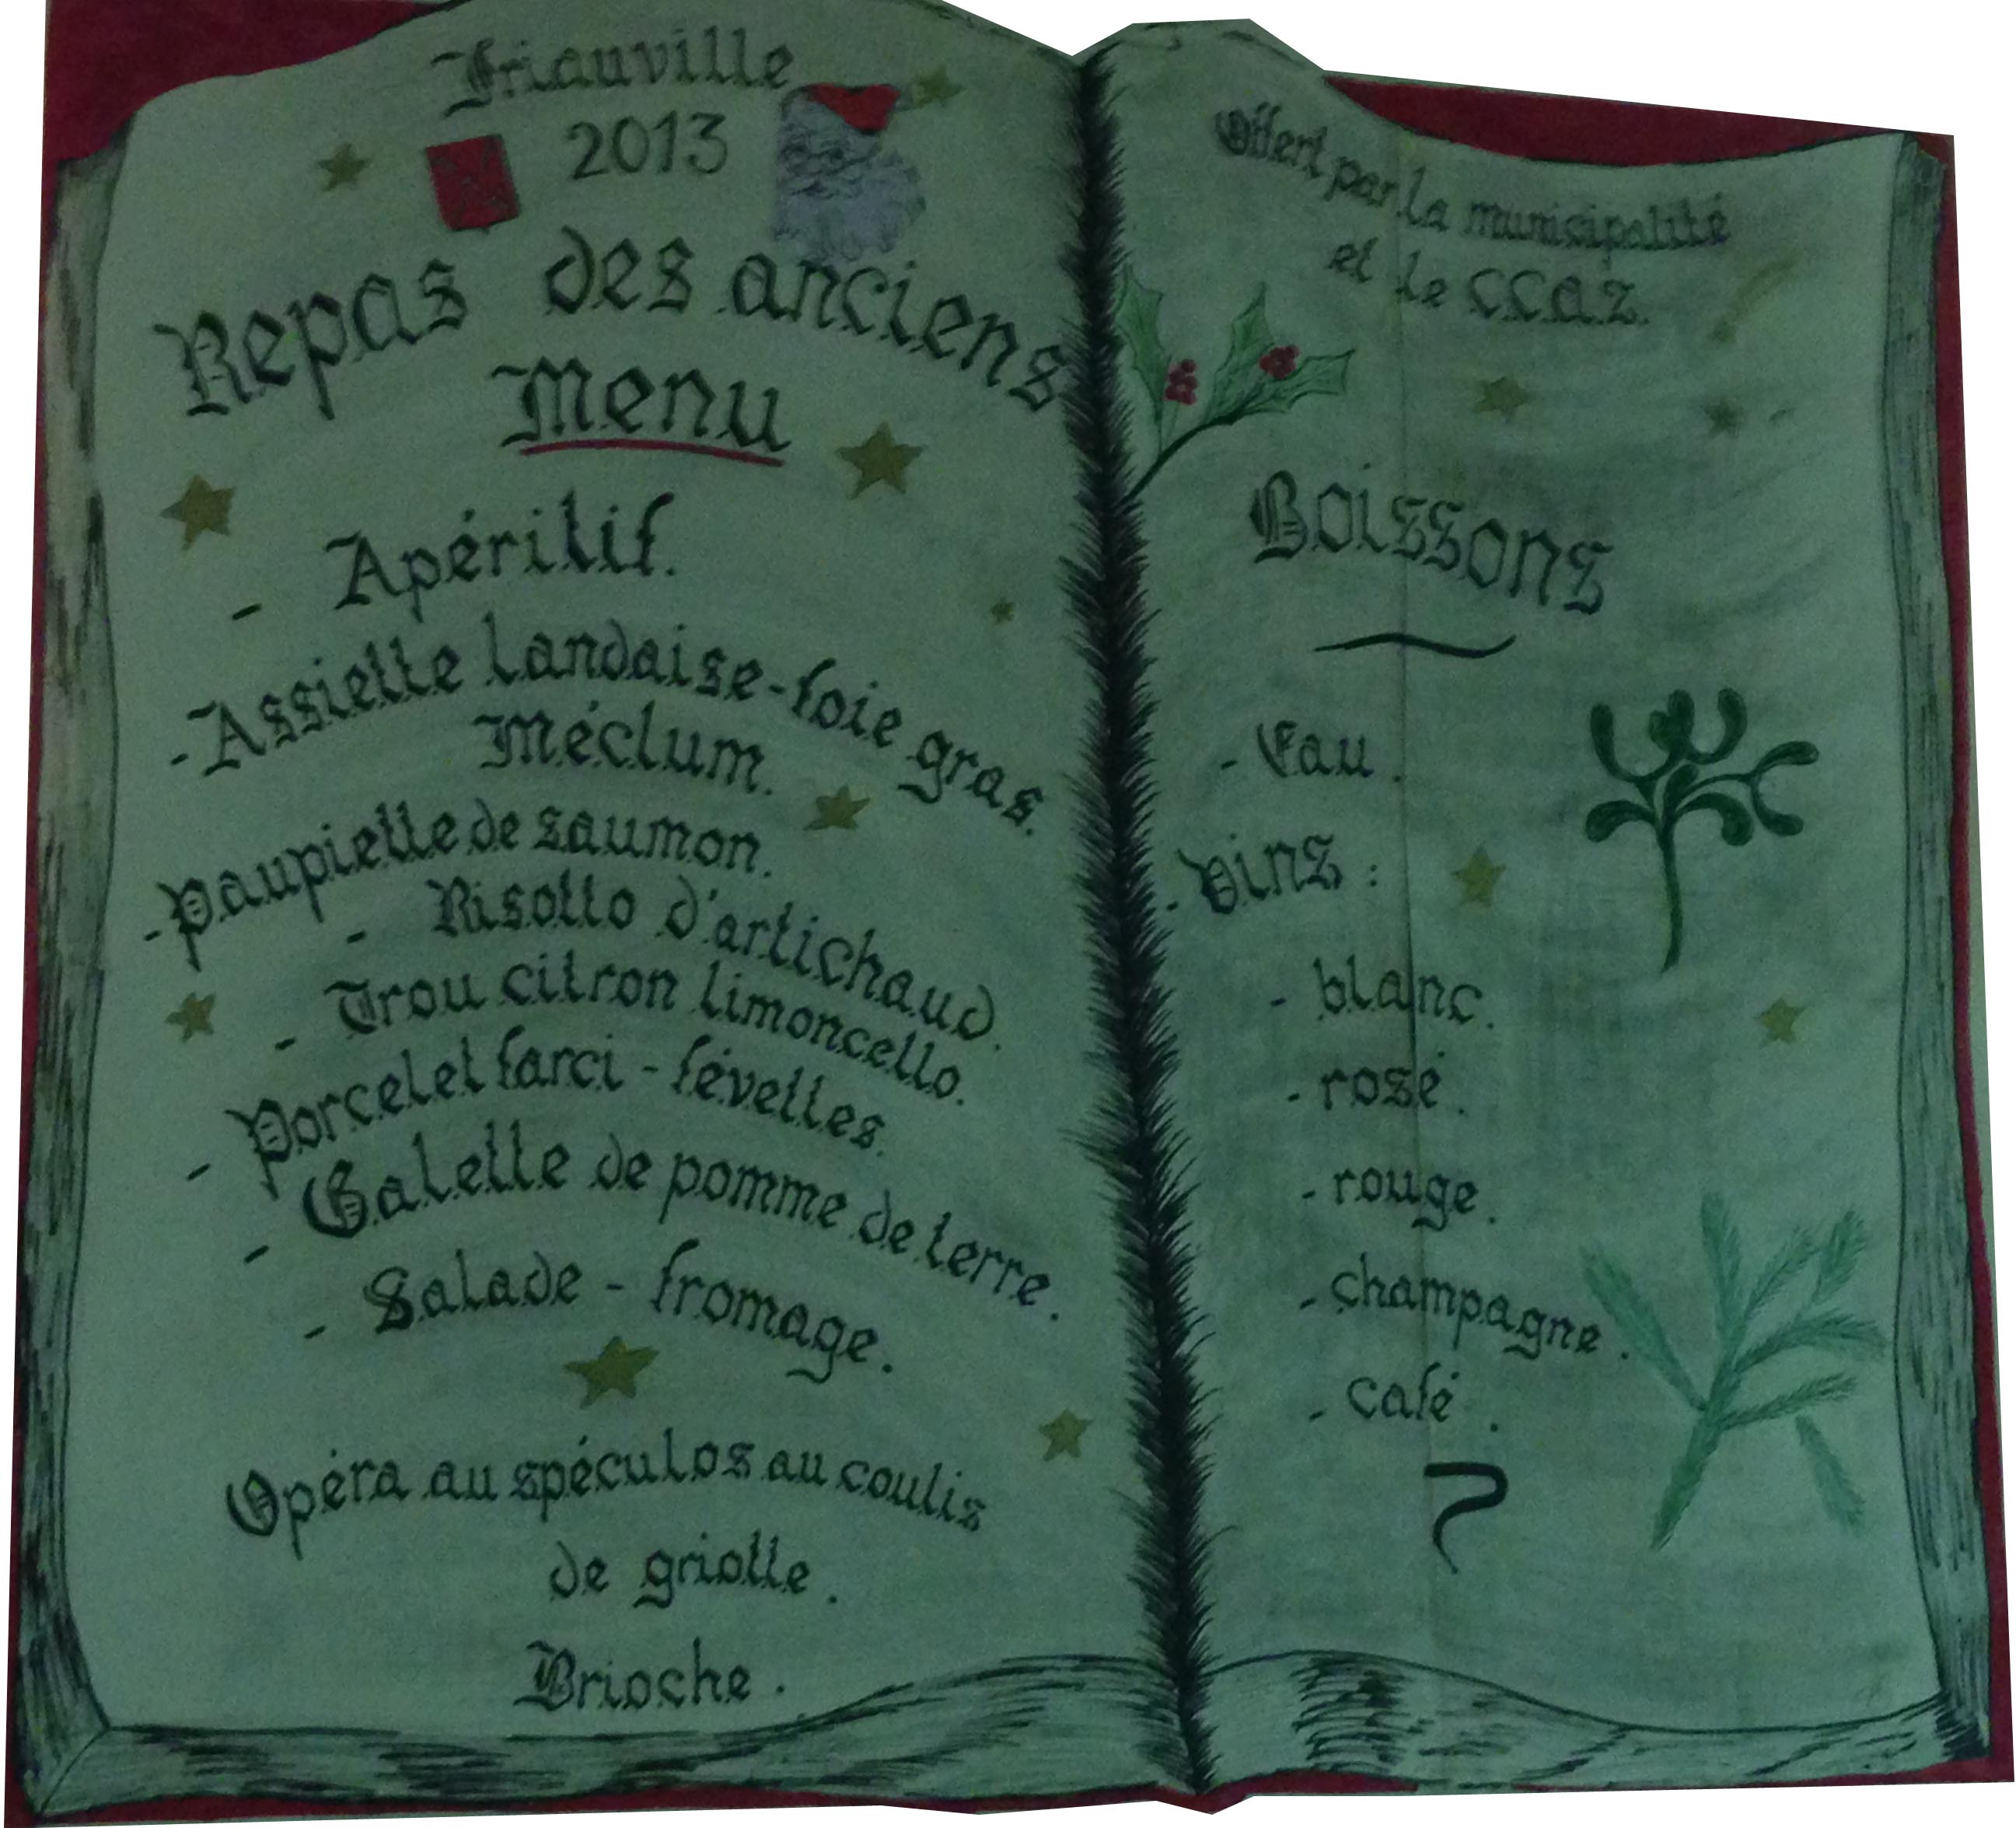 Friauville
2013
Repas des anciens
Menu
- Apéritif.
- Assiette landaise - foie gras.
Méclum.
- Paupiette de saumon.
- Risotto d'artichaud.
- Trou citron limoncello.
- Porcelet farci - févettes.
- Galette de pomme de terre.
- Salade - fromage.
Opéra au spéculos au coulis
de griotte.
Brioche.
Offert par la municipalité
et le CCAS.
Boissons
- Eau.
- Vins :
- blanc.
- rosé.
- rouge.
- champagne.
- café.